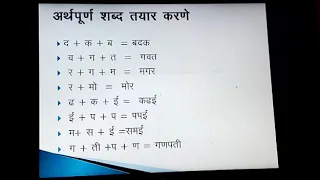 अर्थपूर्ण शब्द तयार करणे
द + क + ब = बदक
व + ग + त = गवत
र + ग + म = मगर
र + मो = मोर
ढ + क + ई = कढई
ई + प + प = पपई
म+ स + ई =समई
ग + ती +प + ण = गणपती